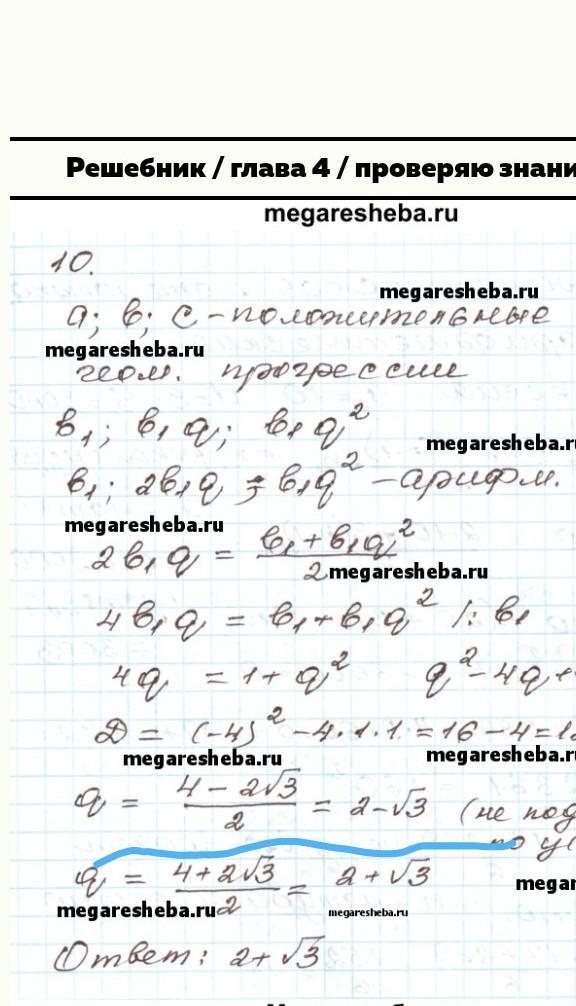 Решебник / глава 4 / проверяю знани
megaresheba.ru
10.
megaresheba.ru
a; b; c - положительные
megaresheba.ru
геом. прогрессии
b₁; b₁q; b₁q²
megaresheba.ru
b₁; 2b₁q ; b₁q² - арифм.
megaresheba.ru
2b₁q = (b₁+b₁q²)/2
megaresheba.ru
4b₁q = b₁+b₁q² /: b₁
4q = 1+q² q²-4q+
D = (-4)²-4·1·1=16-4=1
megaresheba.ru megaresheba.ru
q = (4-2√3)/2 = 2-√3 (не под
по ус
q = (4+2√3)/2 = 2+√3
megar
megaresheba.ru megaresheba.ru
Ответ: 2+√3